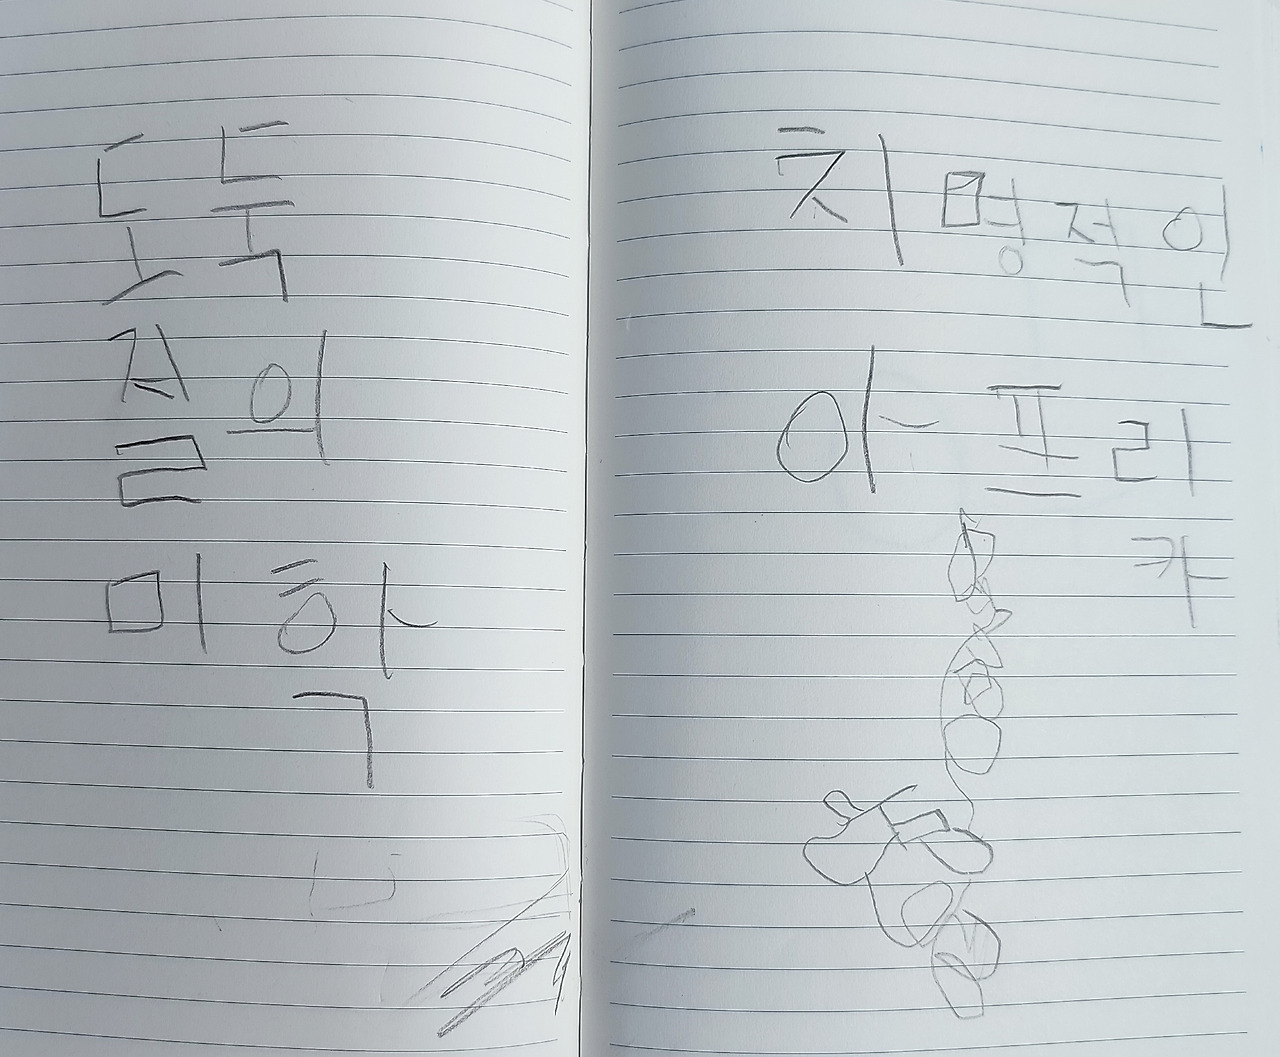 도둑
질의
미학
치명적인
아프리
카